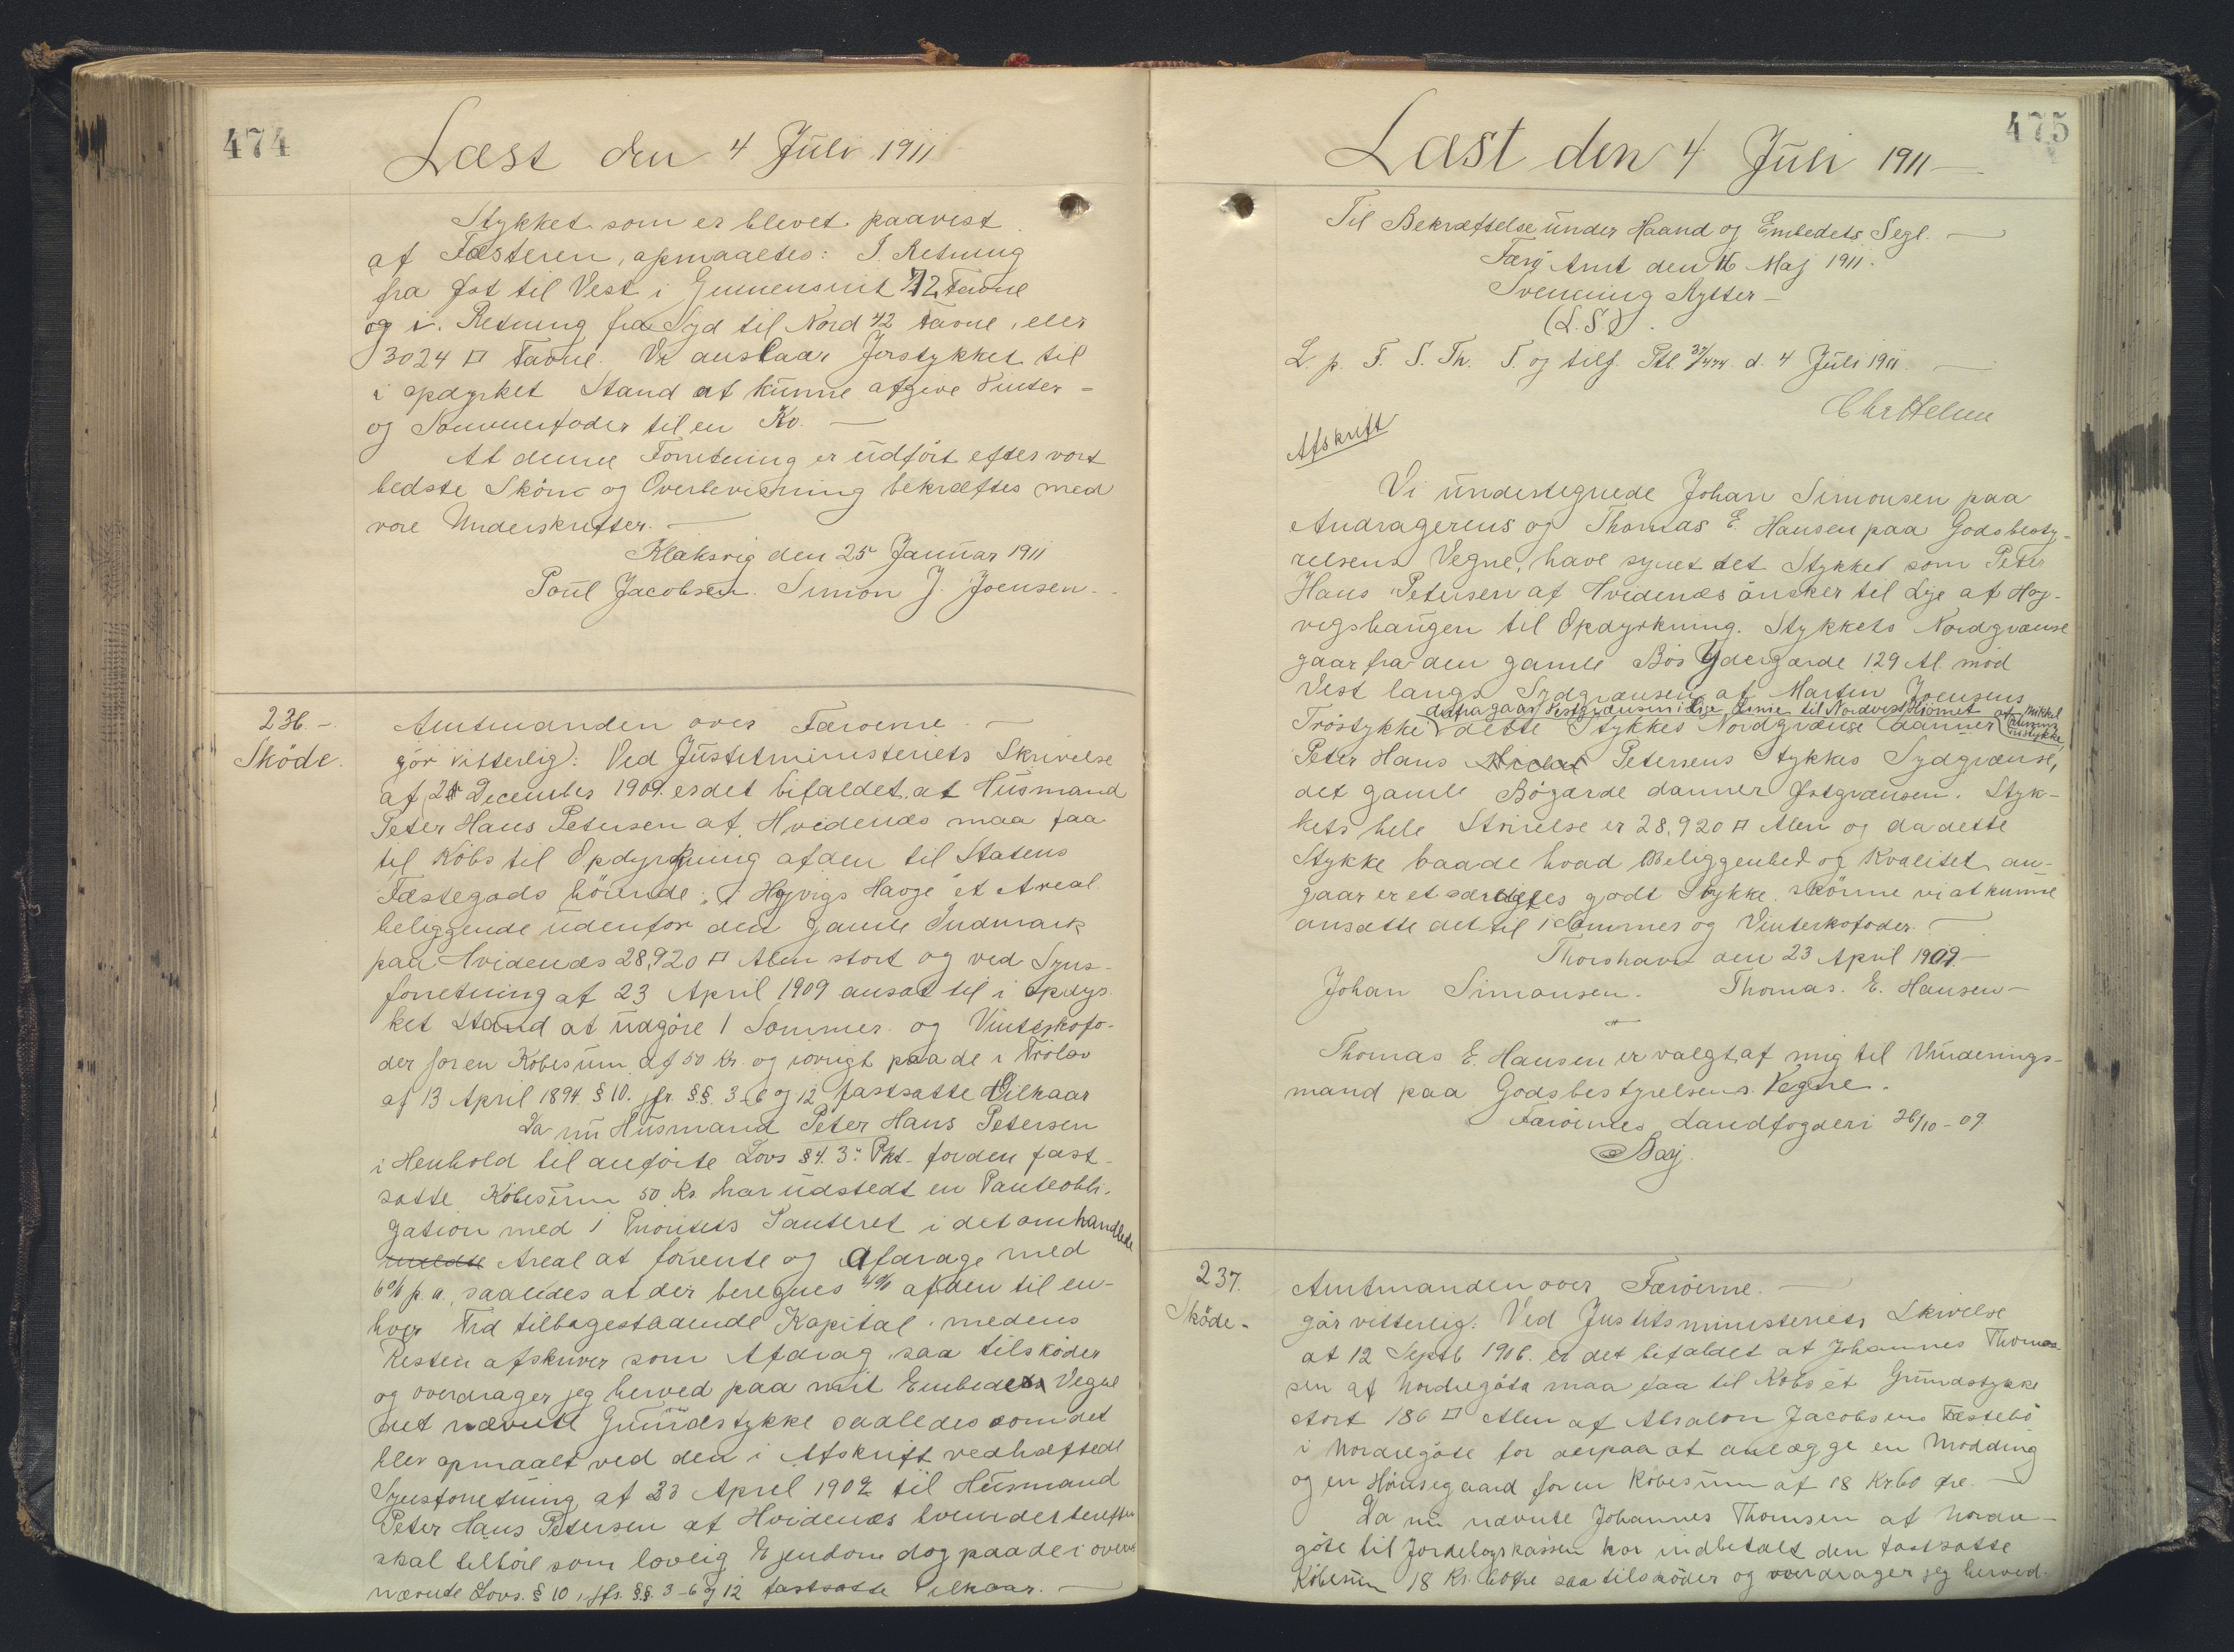 474
Læst den 4 Juli 1911
Stykket som er blevet paavist
af Fæsteren, opmaaltes: I Retning
fra Øst til Vest i Gennensnit 72 Favne
og i Retning fra Syd til Nord 42 Favne, eller
3024 □ Favne. Vi anslaar Jorstykket til
i opdyrket Stand at kunne afgive Vinter-
og Sommerfoder til en Ko. —
At denne Forretning er udført efter vort
bedste Skön og Overbevisning bekræftes med
vore Underskrifter. —
Klaksvig den 25 Januar 1911
Poul Jacobsen. Simon J. Joensen.
236 -
Sköde.
Amtmanden over Færøerne. —
gör vitterlig: Ved Justitministeriets Skrivelse
af 21 December 1909 er det bifaldet, at Husmand
Peter Hans Petersen af Hvidenæs maa faa
til Köbs til Opdyrkning af den til Statens
Fæstegods hörende "i Hoyvigs Hauge" et Areal
beliggende udenfor den gamle Indmark
paa Hvidenæs 28,920 □ Alen stort og ved Syns-
forretning af 23 April 1909 ansat til i opdyr
ket Stand at udgöre 1 Sommer og Vinterkofo-
der for en Köbesum af 50 Kr. og iøvrigt paa de i Trölov
af 13 April 1894 § 10. jfr. §§. 3-6 og 12 fastsatte Vilkaar
Da nu Husmand Peter Hans Petersen
i Henhold til anførte Lovs § 4. 3' Pkt. for den fast-
satte Köbesum 50 Kr. har udstedt en Panteobli-
gation med 1 Prioritets Panteret i det omhandlede
Areal at forrente og afdrage med
6% p. a., saaledes at der beregnes 4% af den til en-
hver Tid tilbagestaaende Kapital, medens
Resten afskriver som Afdrag, saa tilsköder
og overdrager jeg herved paa mit Embedes Vegne
det nævnte Grundstykke saaledes som det
blev opmaalt ved den i Afskrift vedhæftede
Synsforretning af 23 April 1909 til Husmand
Peter Hans Petersen af Hvidenæs hvem det herefter
skal tilhöre som lovlig Ejendom dog paa de i oven
nævnte Lovs. § 10, jfr. §§. 3-6 og 12 fastsatte Vilkaar. —
475
Læst den 4 Juli 1911 —
Til Bekræftelse under Haand og Embedets Segl. —
Færø Amt den 16 Maj 1911.
Svenning Rytter —
(L. S.)
L. p. F. S. Th. T. og tilf. Ptl. 37/474 d. 4 Juli 1911. —
Chr Helme
Afskrift
Vi undertegnede Johan Simonsen paa
Andragerens og Thomas E. Hansen paa Godsbesty-
relsens Vegne, have synet det Stykket som Peter
Hans Petersen af Hvidenæs önsker til Leje af Hoy-
vigshaugen til Opdyrkning. Stykkets Nordgrænse
gaar fra den gamle Bös Ydergærde 129 Al. mod
Vest langs Sydgrænsen af Martin Joensens
derfra gaar Vestgrænsen i lige Linie til Nordvest Hjörnet af Mikkel
Tröstykke dette Stykkes Nordgrænse danner
Peter Hans Petersens Stykkes Sydgrænse,
det gamle Bögærde danner Östgrænsen. Styk-
kets hele Störrelse er 28,920 □ Alen og da dette
Stykke baade hvad Beliggenhed og Kvalitet an-
gaar er et særdeles godt Stykke, skönne vi at kunne
ansætte det til 1 Sommer og Vinterkofoder. —
Thorshavn den 23 April 1909. —
Johan Simonsen. Thomas. E. Hansen —
Thomas E. Hansen er valgt af mig til Vurderings-
mand paa Godsbestyrelsens Vegne.
Færöernes Landfogderi 26/10 - 09
Bærj.
237.
Sköde -
Amtmanden over Færöerne. —
gör vitterlig: Ved Justitsministeriets Skrivelse
af 12 Septb 1906. er det bifaldet at Johannes Thomas-
sen af Nordregöta maa faa til Köbs et Grundstykke
stort 186 □ Alen af Absalon Jacobsens Fæstebö
i Nordregöte for derpaa at anlægge en Modding
og en Hønsegaard for en Köbesum af 18 Kr. 60 Øre. —
Da nu nævnte Johannes Thomsen af Nordre-
göte til Jordebogskassen har indbetalt den fastsatte
Köbesum 18 Kr. 60 Øre saa tilsköder og overdrager jeg herved.